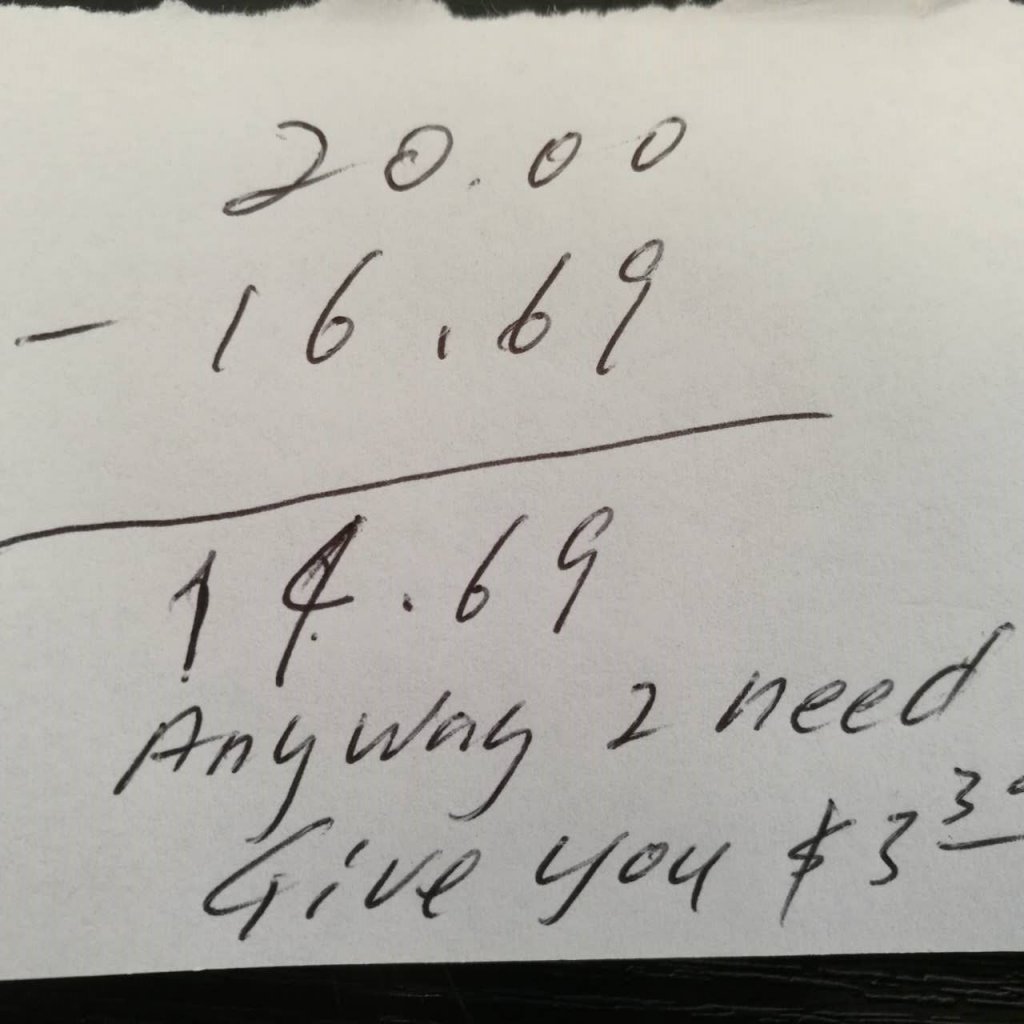 20.00
- 16.69
14.69
Anyway 2 need
Give you $3